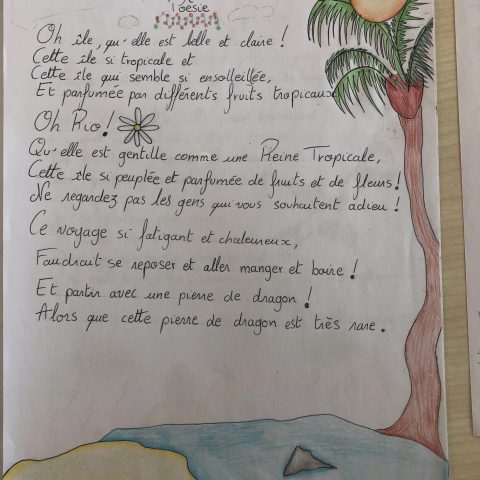 Poésie
Oh île, qu'elle est belle et claire !
Cette île si tropicale et
Cette île qui semble si ensolleillée,
Et parfumée par différents fruits tropicaux
Oh Rio !
Qu'elle est gentille comme une Reine Tropicale,
Cette île si peuplée et parfumée de fruits et de fleurs !
Ne regardez pas les gens qui vous souhaitent adieu !
Ce voyage si fatigant et chaleureux,
Faudrait se reposer et aller manger et boire !
Et partir avec une pierre de dragon !
Alors que cette pierre de dragon est très rare.